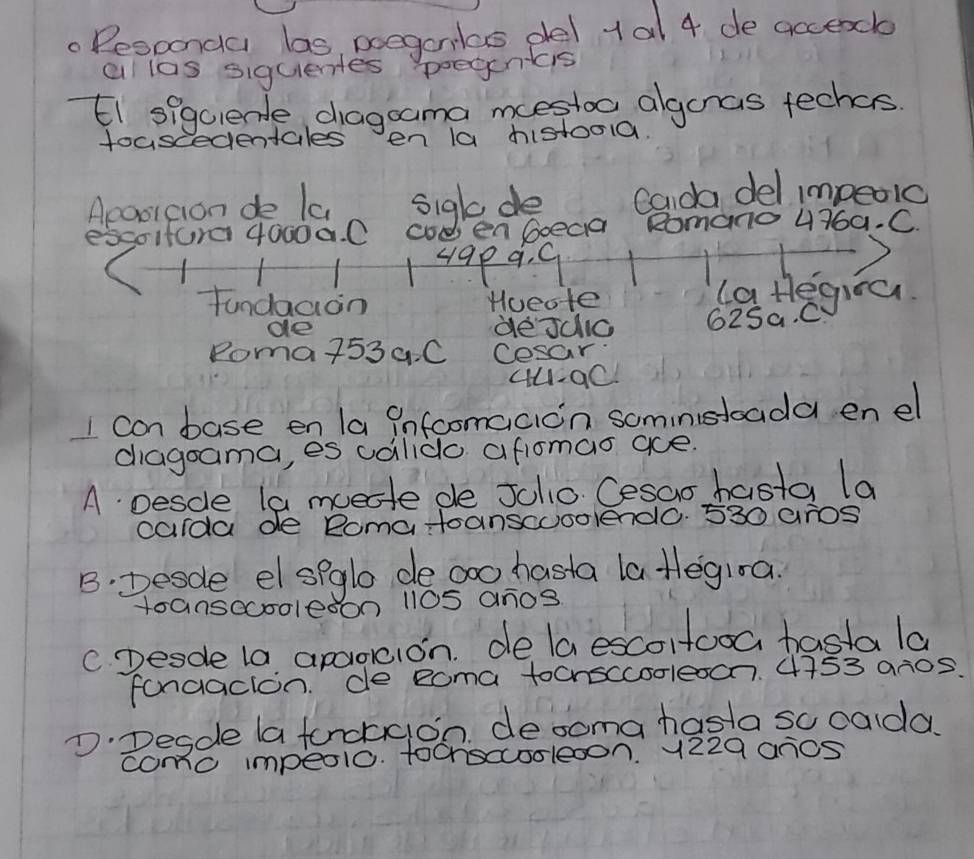 ∘ Responda las preguntas del 1 al 4 de acuerdo
a las siguientes preguntas
El siguiente diagrama muestra algunas fechas.
trascedentales en la historia.
Aparición de la escritura 4000 a.C
siglo de oro en Grecia 490 a.C
Caida del imperio Romano 476 a.C.
Fundación de Roma 753 a.C
Muerte de Julio Cesar. 44. aC.
La Hégira. 625 a.C.
1 Con base en la información suministrada en el
diagrama, es válido afirmar que.
A. Desde la muerte de Julio. Cesar hasta la
caida de Roma transcurriendo. 530 años
B. Desde el siglo de oro hasta la Hégira.
transcurrieron 1105 años
C. Desde la aparición. de la escritura hasta la
fundación. de Roma transcurrieron. 4753 años.
D. Desde la fundación. de roma hasta su caida.
como imperio. transcurrieron. 1229 años